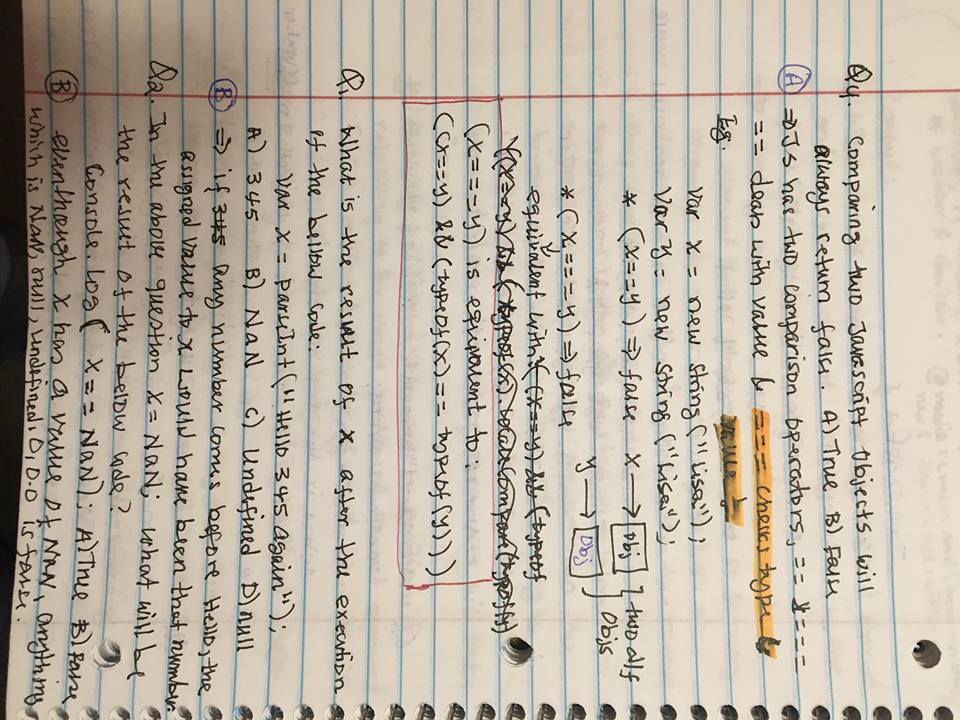 Q4. Comparing two Javascript Objects will
always return false. A) True B) False
(A) => JS has two comparison operators, == & ===
== deals with value & === checks type &
Eg. value
var x = new String ("Lisa");
var y = new String ("Lisa");
* (x==y) => false x → [Obj] } two diff
y → [Obj] Objs
* (x===y) => false
equivalent with (x==y) && (typeof
(x===y) is equivalent to:
((x==y) && (typeof(x)===typeof(y)))
Q1. What is the result of x after the execution
of the bellow code:
Var x = parseInt("Hello 345 again");
A) 345 B) NaN C) Undefined D) null
(B) => if 345 any number comes before Hello, the
assigned value to x would have been that number.
Q2. In the above question x = NaN; what will be
the result of the below code?
Console.log( x == NaN); A) True B) False
(B) eventhough x has a value of NaN, anything
which is NaN, null, undefined, 0, 0.0 is false.